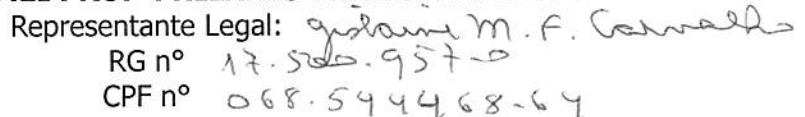 Representante Legal: Gislaine M. F. Carvalho
RG nº 17.520.957-0
CPF nº 068.544468-64